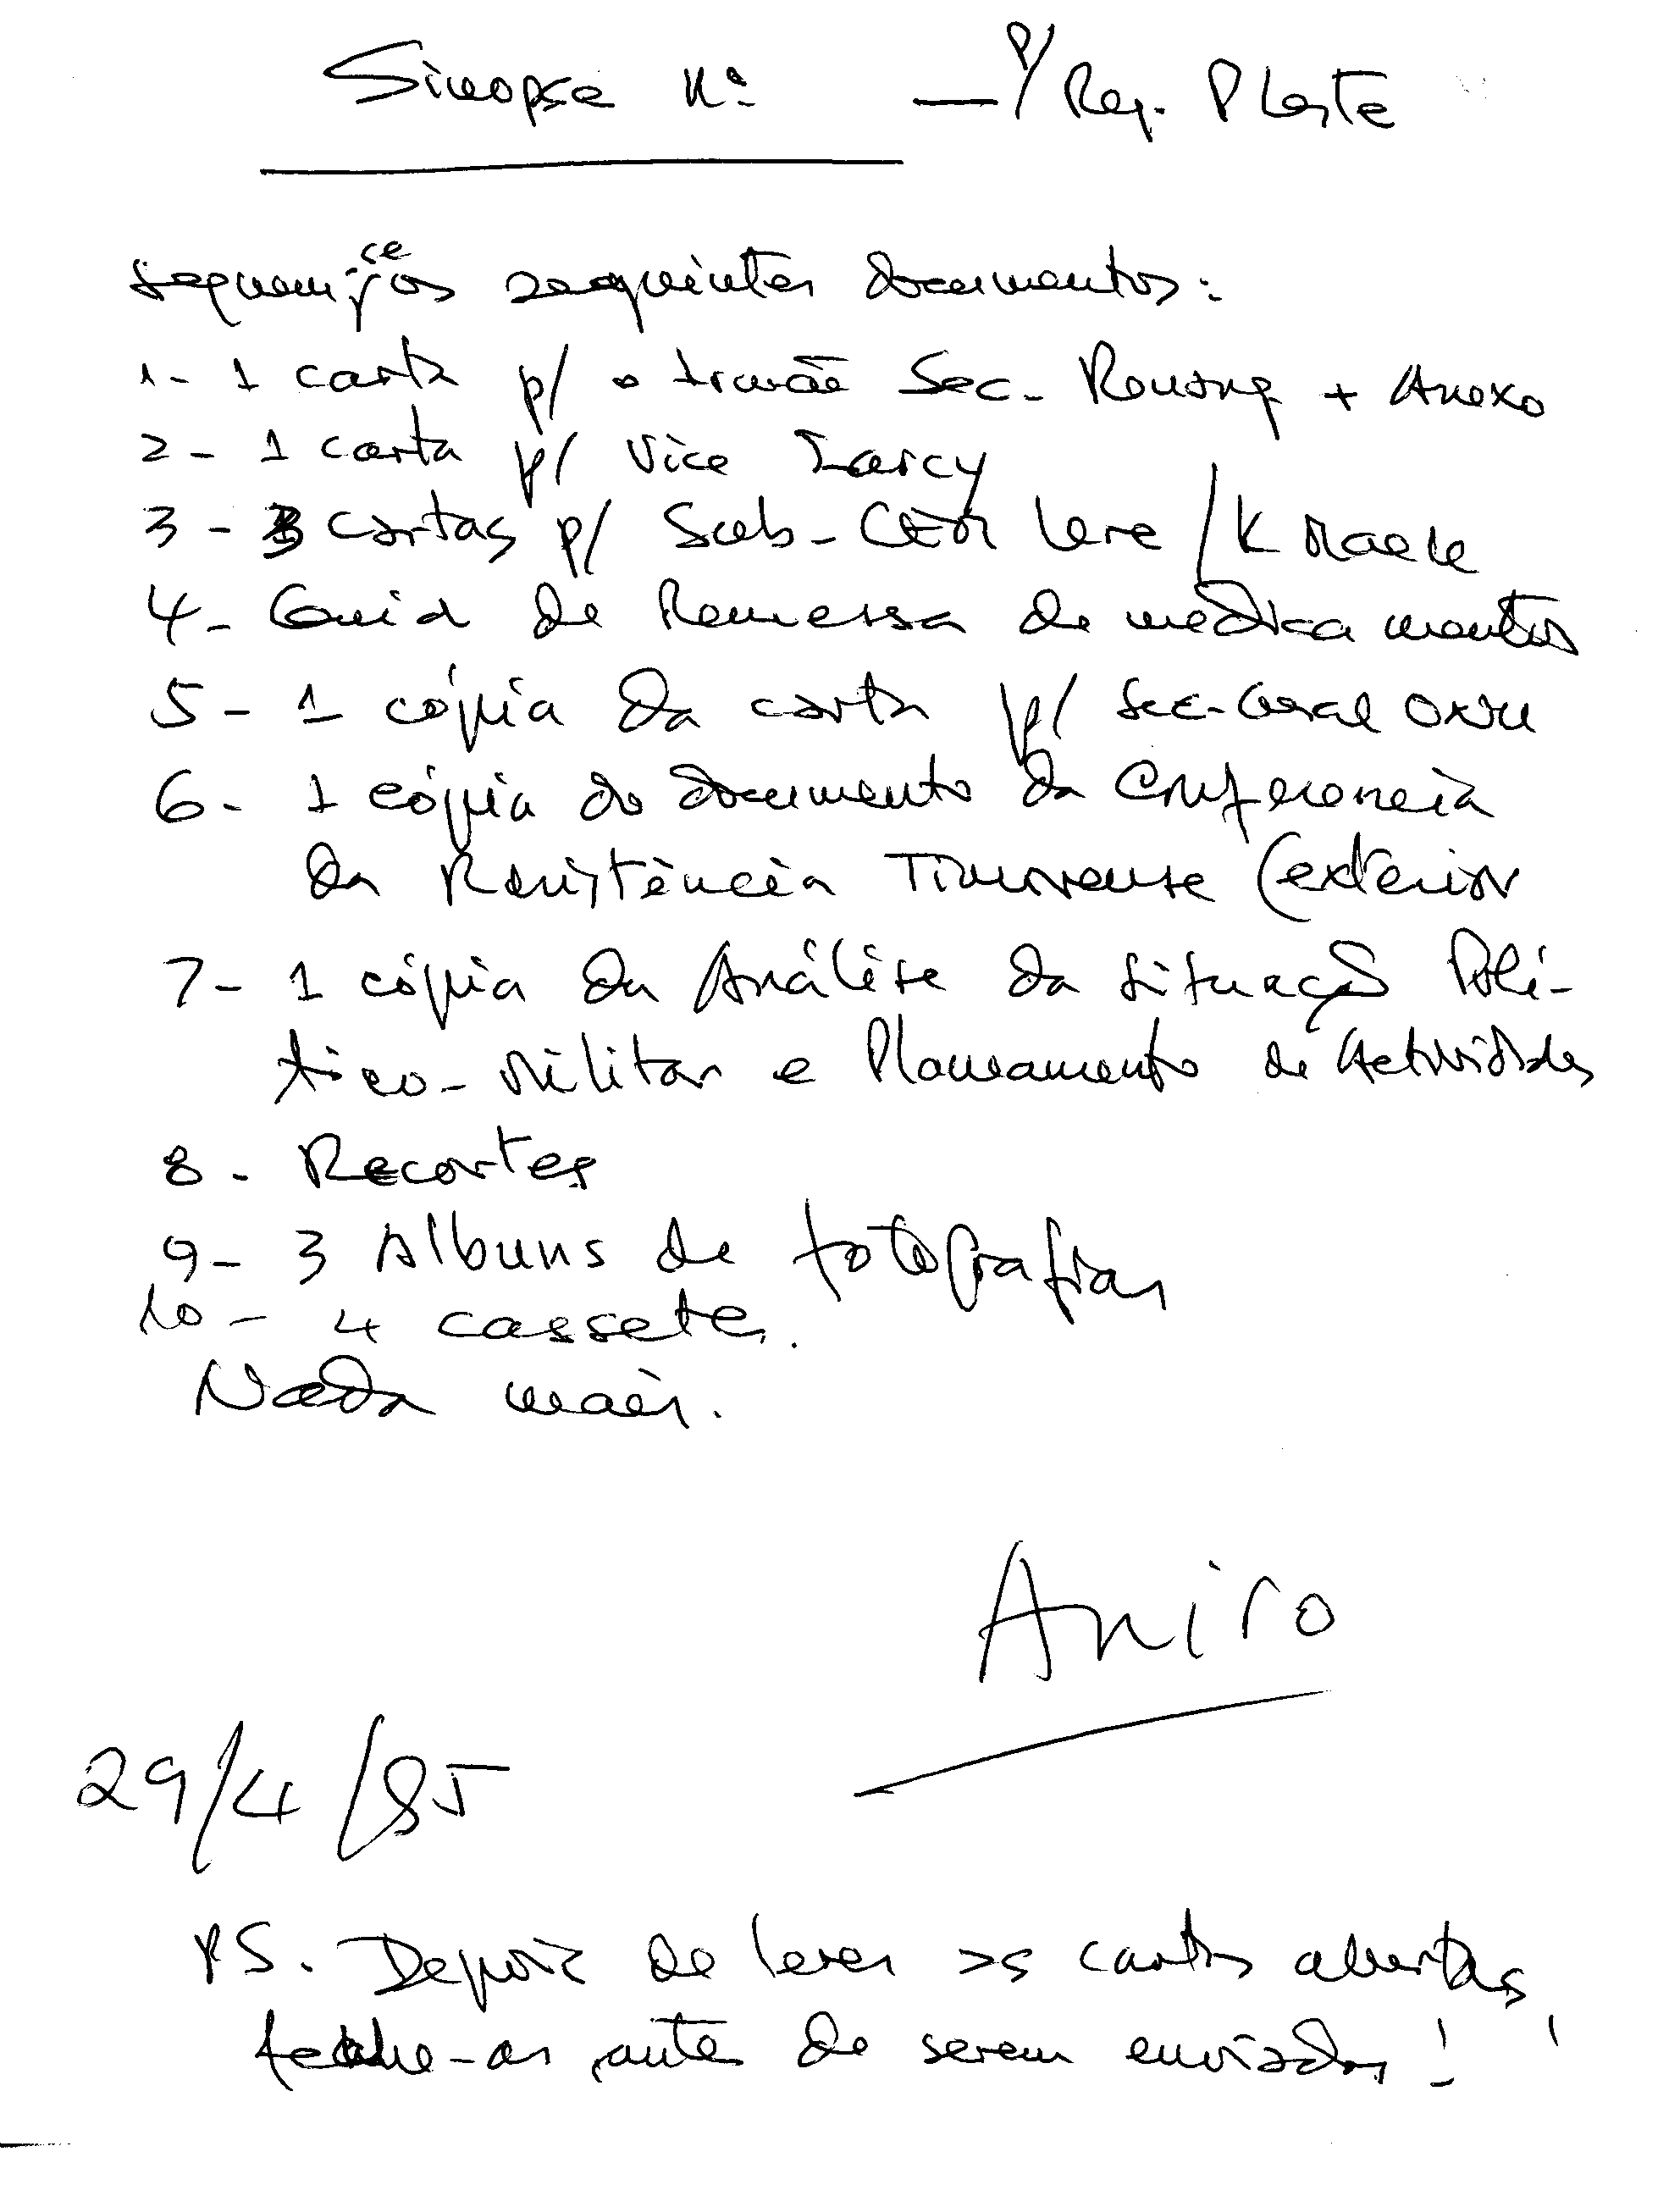 Sinopse nº — p/ Reg. P Leste
Seguem-se os seguintes documentos:
1- 1 carta p/ o irmão Sec. + Anexo
2- 1 carta p/ Vice Larcy
3- 3 cartas p/ Sub-CEM Lere / K
4- Guia de Remessa de medicamentos
5- 1 cópia da carta p/ Sec-Geral ONU
6- 1 cópia do documento da Conferencia
da Resistência Timorense (exterior
7- 1 cópia da Análise da Situação Polí-
tico-Militar e Planeamento de Actividades
8- Recortes
9- 3 Albuns de fotografias
10- 4 cassetes.
Nada mais.
Aniro
29/4/85
PS. Depois de leres as cartas abertas,
feche-as, antes de serem enviadas!